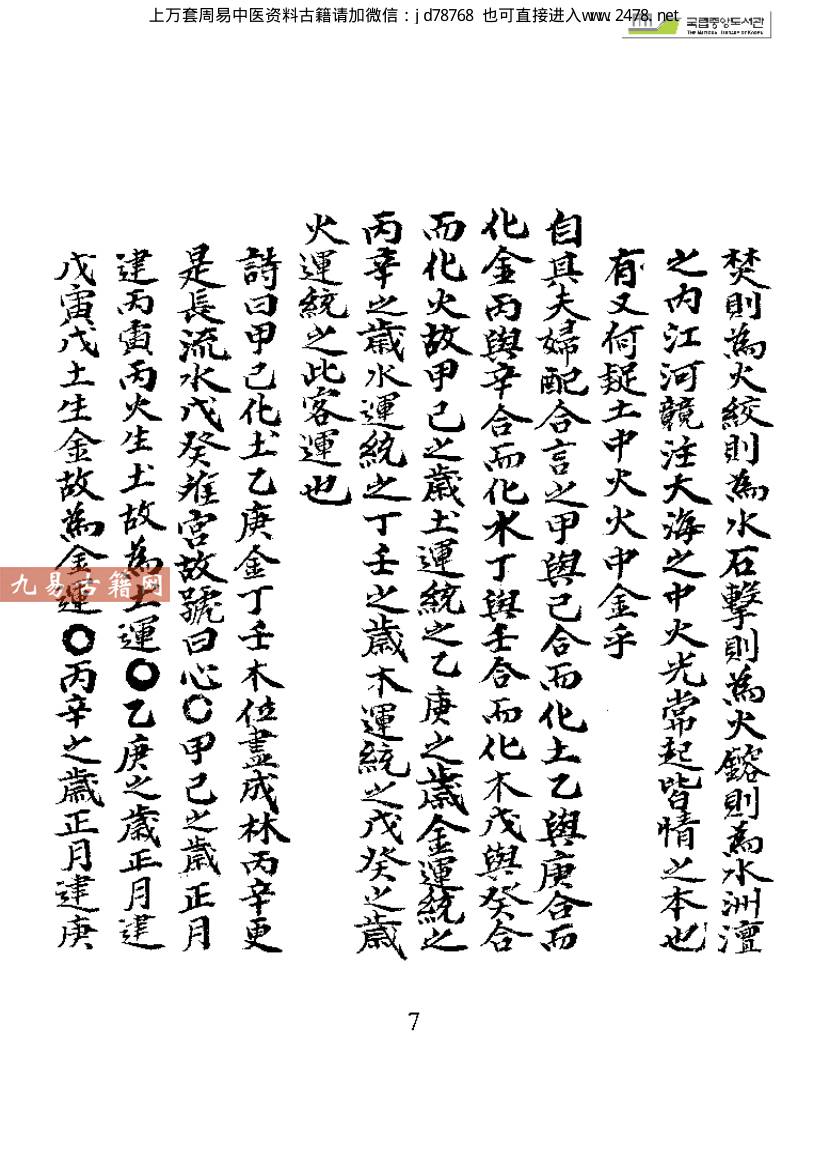 上万套周易中医资料古籍请加微信：jd78768 也可直接进入www.2478.net
국립중앙도서관
THE NATIONAL LIBRARY OF KOREA
焚則為火絞則為水石擊則為火鎔則為水洲澶
之内江河競注大海之中火光常起皆情之本也
有又何疑土中火火中金乎
自其夫婦配合言之甲與己合而化土乙與庚合而
化金丙與辛合而化水丁與壬合而化木戊與癸合
而化火故甲己之歲土運統之乙庚之歲金運統之
丙辛之歲水運統之丁壬之歲木運統之戊癸之歲
火運統之此客運也
詩曰甲己化土乙庚金丁壬木位盡成林丙辛更
是長流水戊癸離宮故號曰心〇甲己之歲正月
建丙寅丙火生土故為土運〇乙庚之歲正月建
戊寅戊土生金故為金運〇丙辛之歲正月建庚
九易古籍网
7